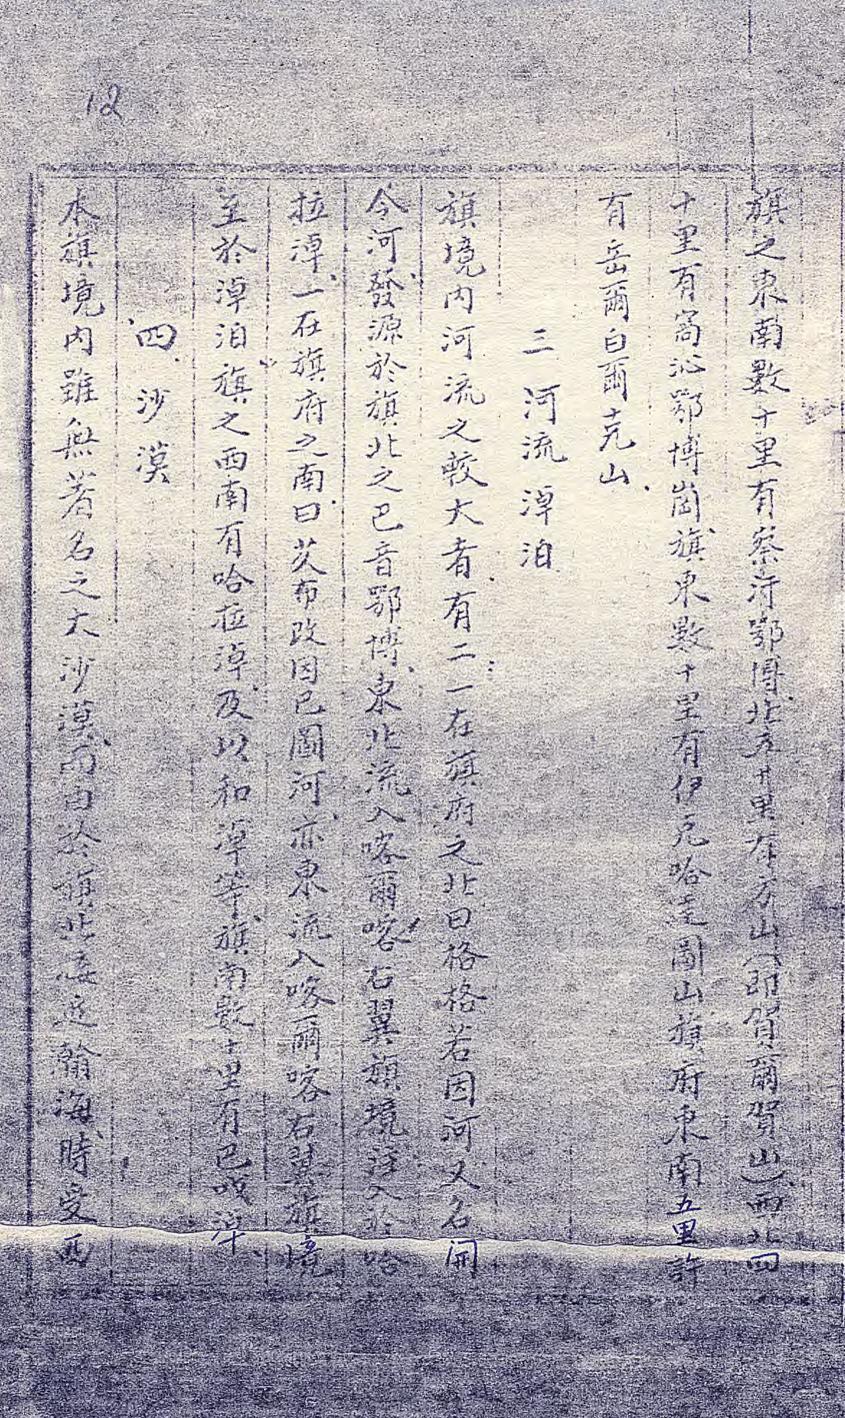 12
旗之東南數十里有察汗鄂博北五十里有方山(即賀爾賀山)西北四
十里有嵩沁鄂博崗旗東數十里有伊克哈達圖山旗府東南五里許
有岳爾白爾克山
三 河流淖泊
旗境内河流之較大者有二一在旗府之北曰格格若因河又名開
令河發源於旗北之巴音鄂博東北流入喀爾喀右翼旗境注入於哈
拉淖一在旗府之南曰艾布改因巴圖河亦東流入喀爾喀右翼旗境
至於淖泊旗之西南有哈拉淖及以和淖等旗南數十里有巴嘎淖
四 沙漠
本旗境内雖無著名之大沙漠而由於旗北接近瀚海時受西